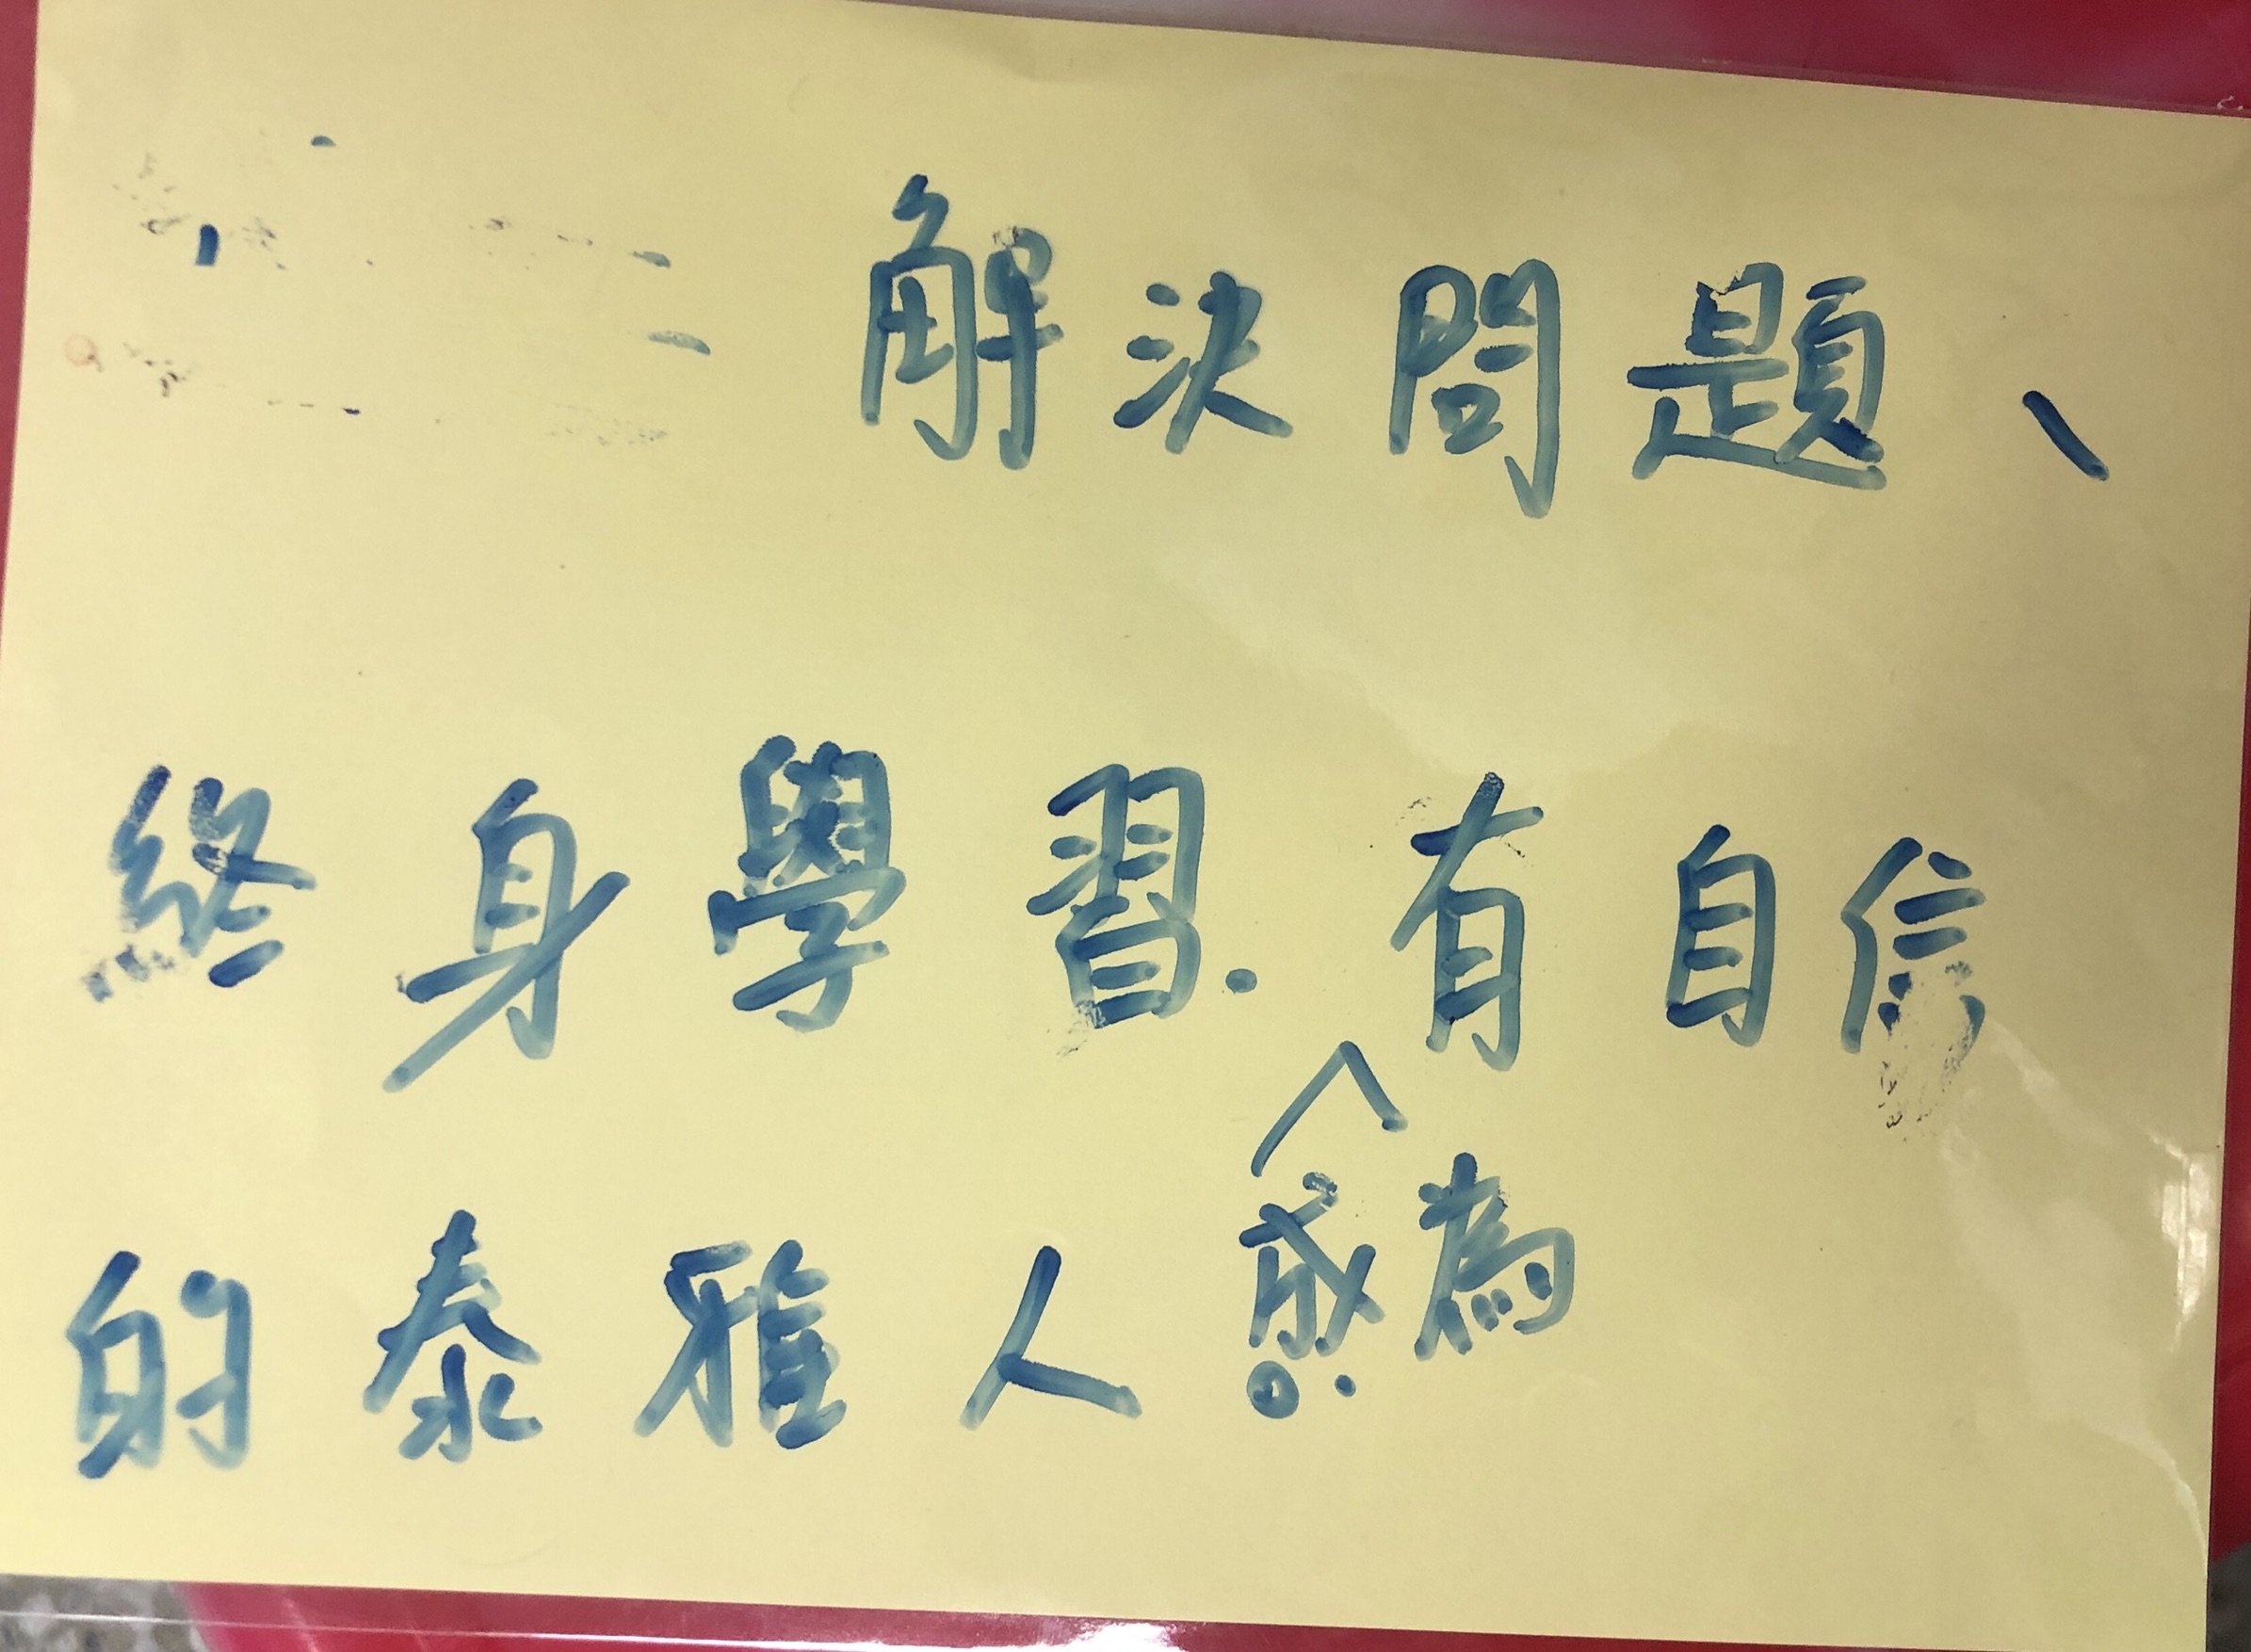 解決問題、
終身學習.有自信
成為
的泰雅人。